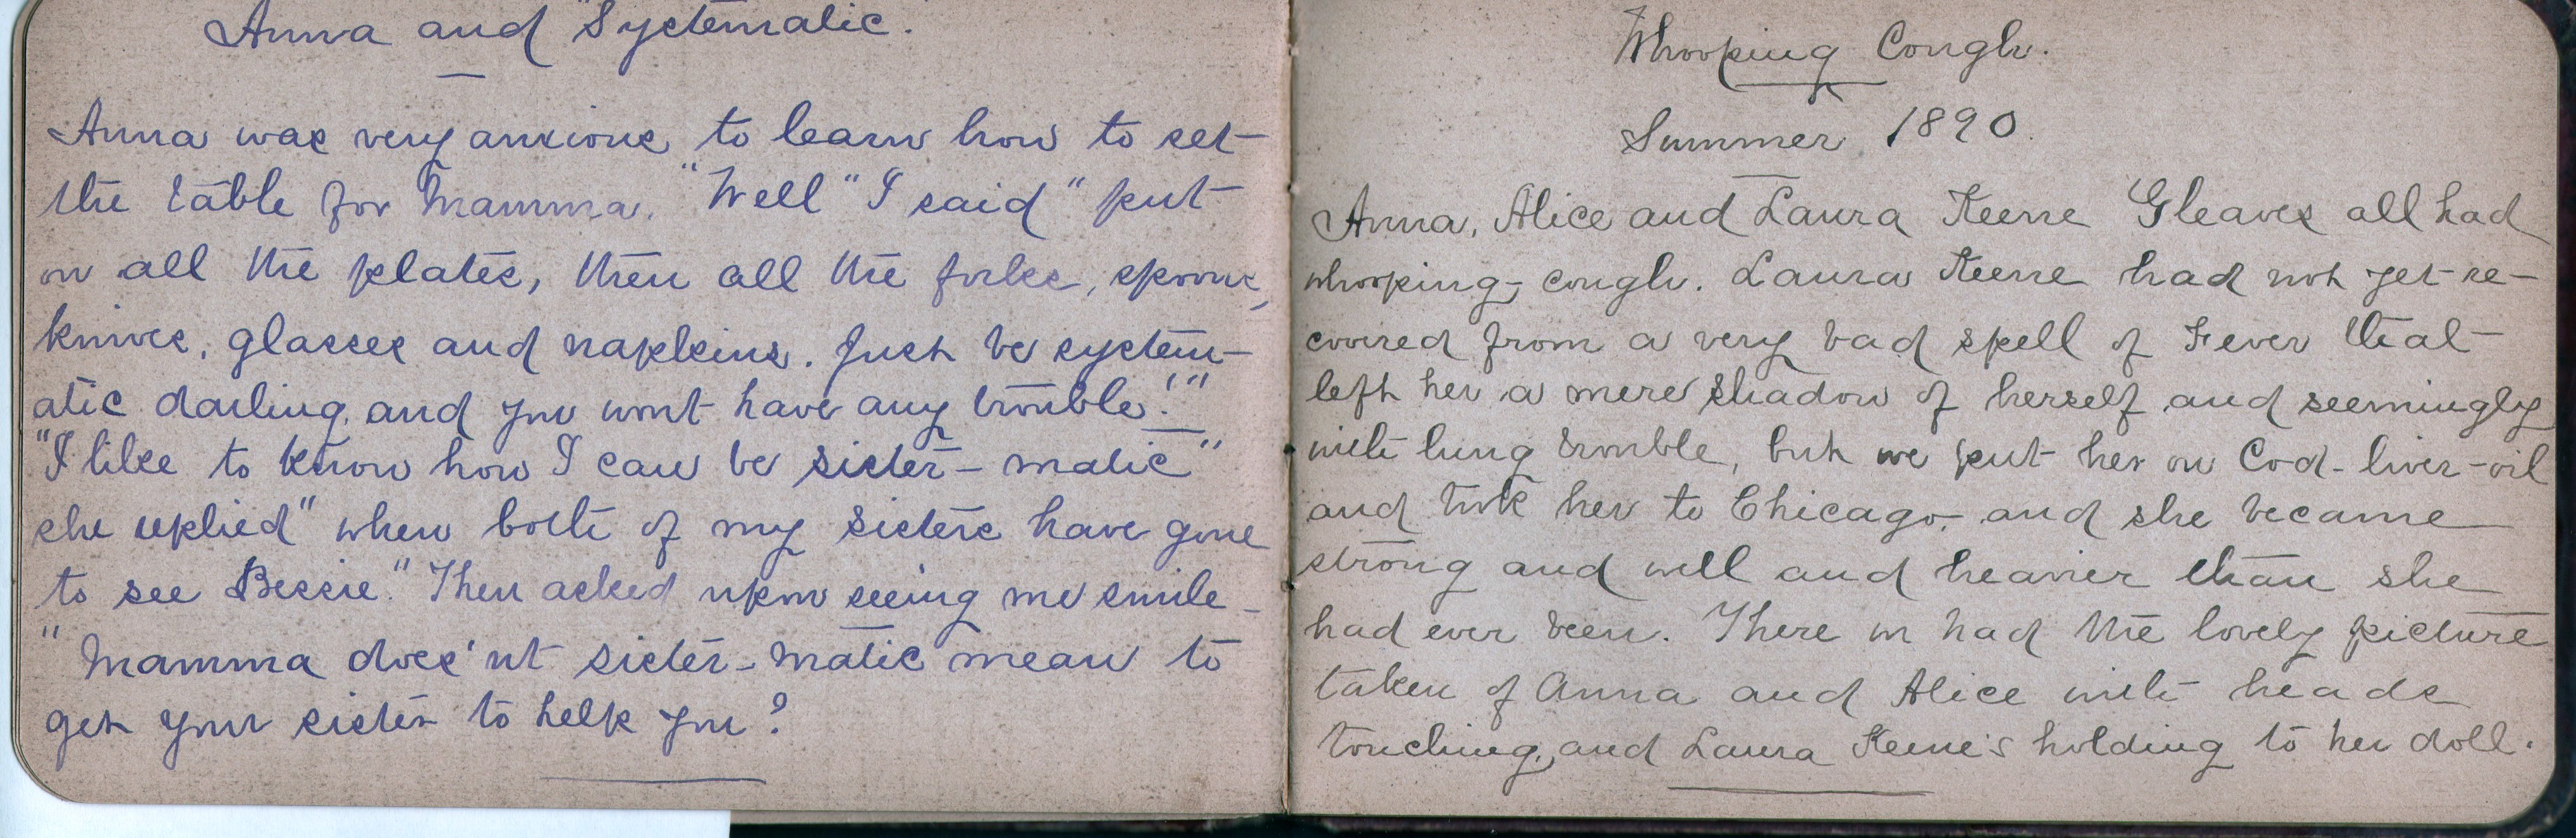 Anna and "Systematic."
Anna was very anxious to learn how to set
the table for Mamma. "Well" I said "put
on all the plates, then all the forks, spoons,
knives, glasses and napkins. Just be system-
atic darling, and you wont have any trouble."
"I like to know how I can be sister-matic"
she replied "when both of my sisters have gone
to see Bessie." Then asked upon seeing me smile-
"Mamma does'nt sister-matic mean to
get your sister to help you?
Whooping Cough.
Summer 1890.
Anna, Alice and Laura Keene Gleaves all had
whooping-cough. Laura Keene had not yet re-
covered from a very bad spell of Fever that
left her a mere shadow of herself and seemingly
with lung trouble, but we put her on Cod-liver-oil
and took her to Chicago, and she became
strong and well and heavier than she
had ever been. There we had the lovely picture
taken of Anna and Alice with heads
touching, and Laura Keene's holding to her doll.